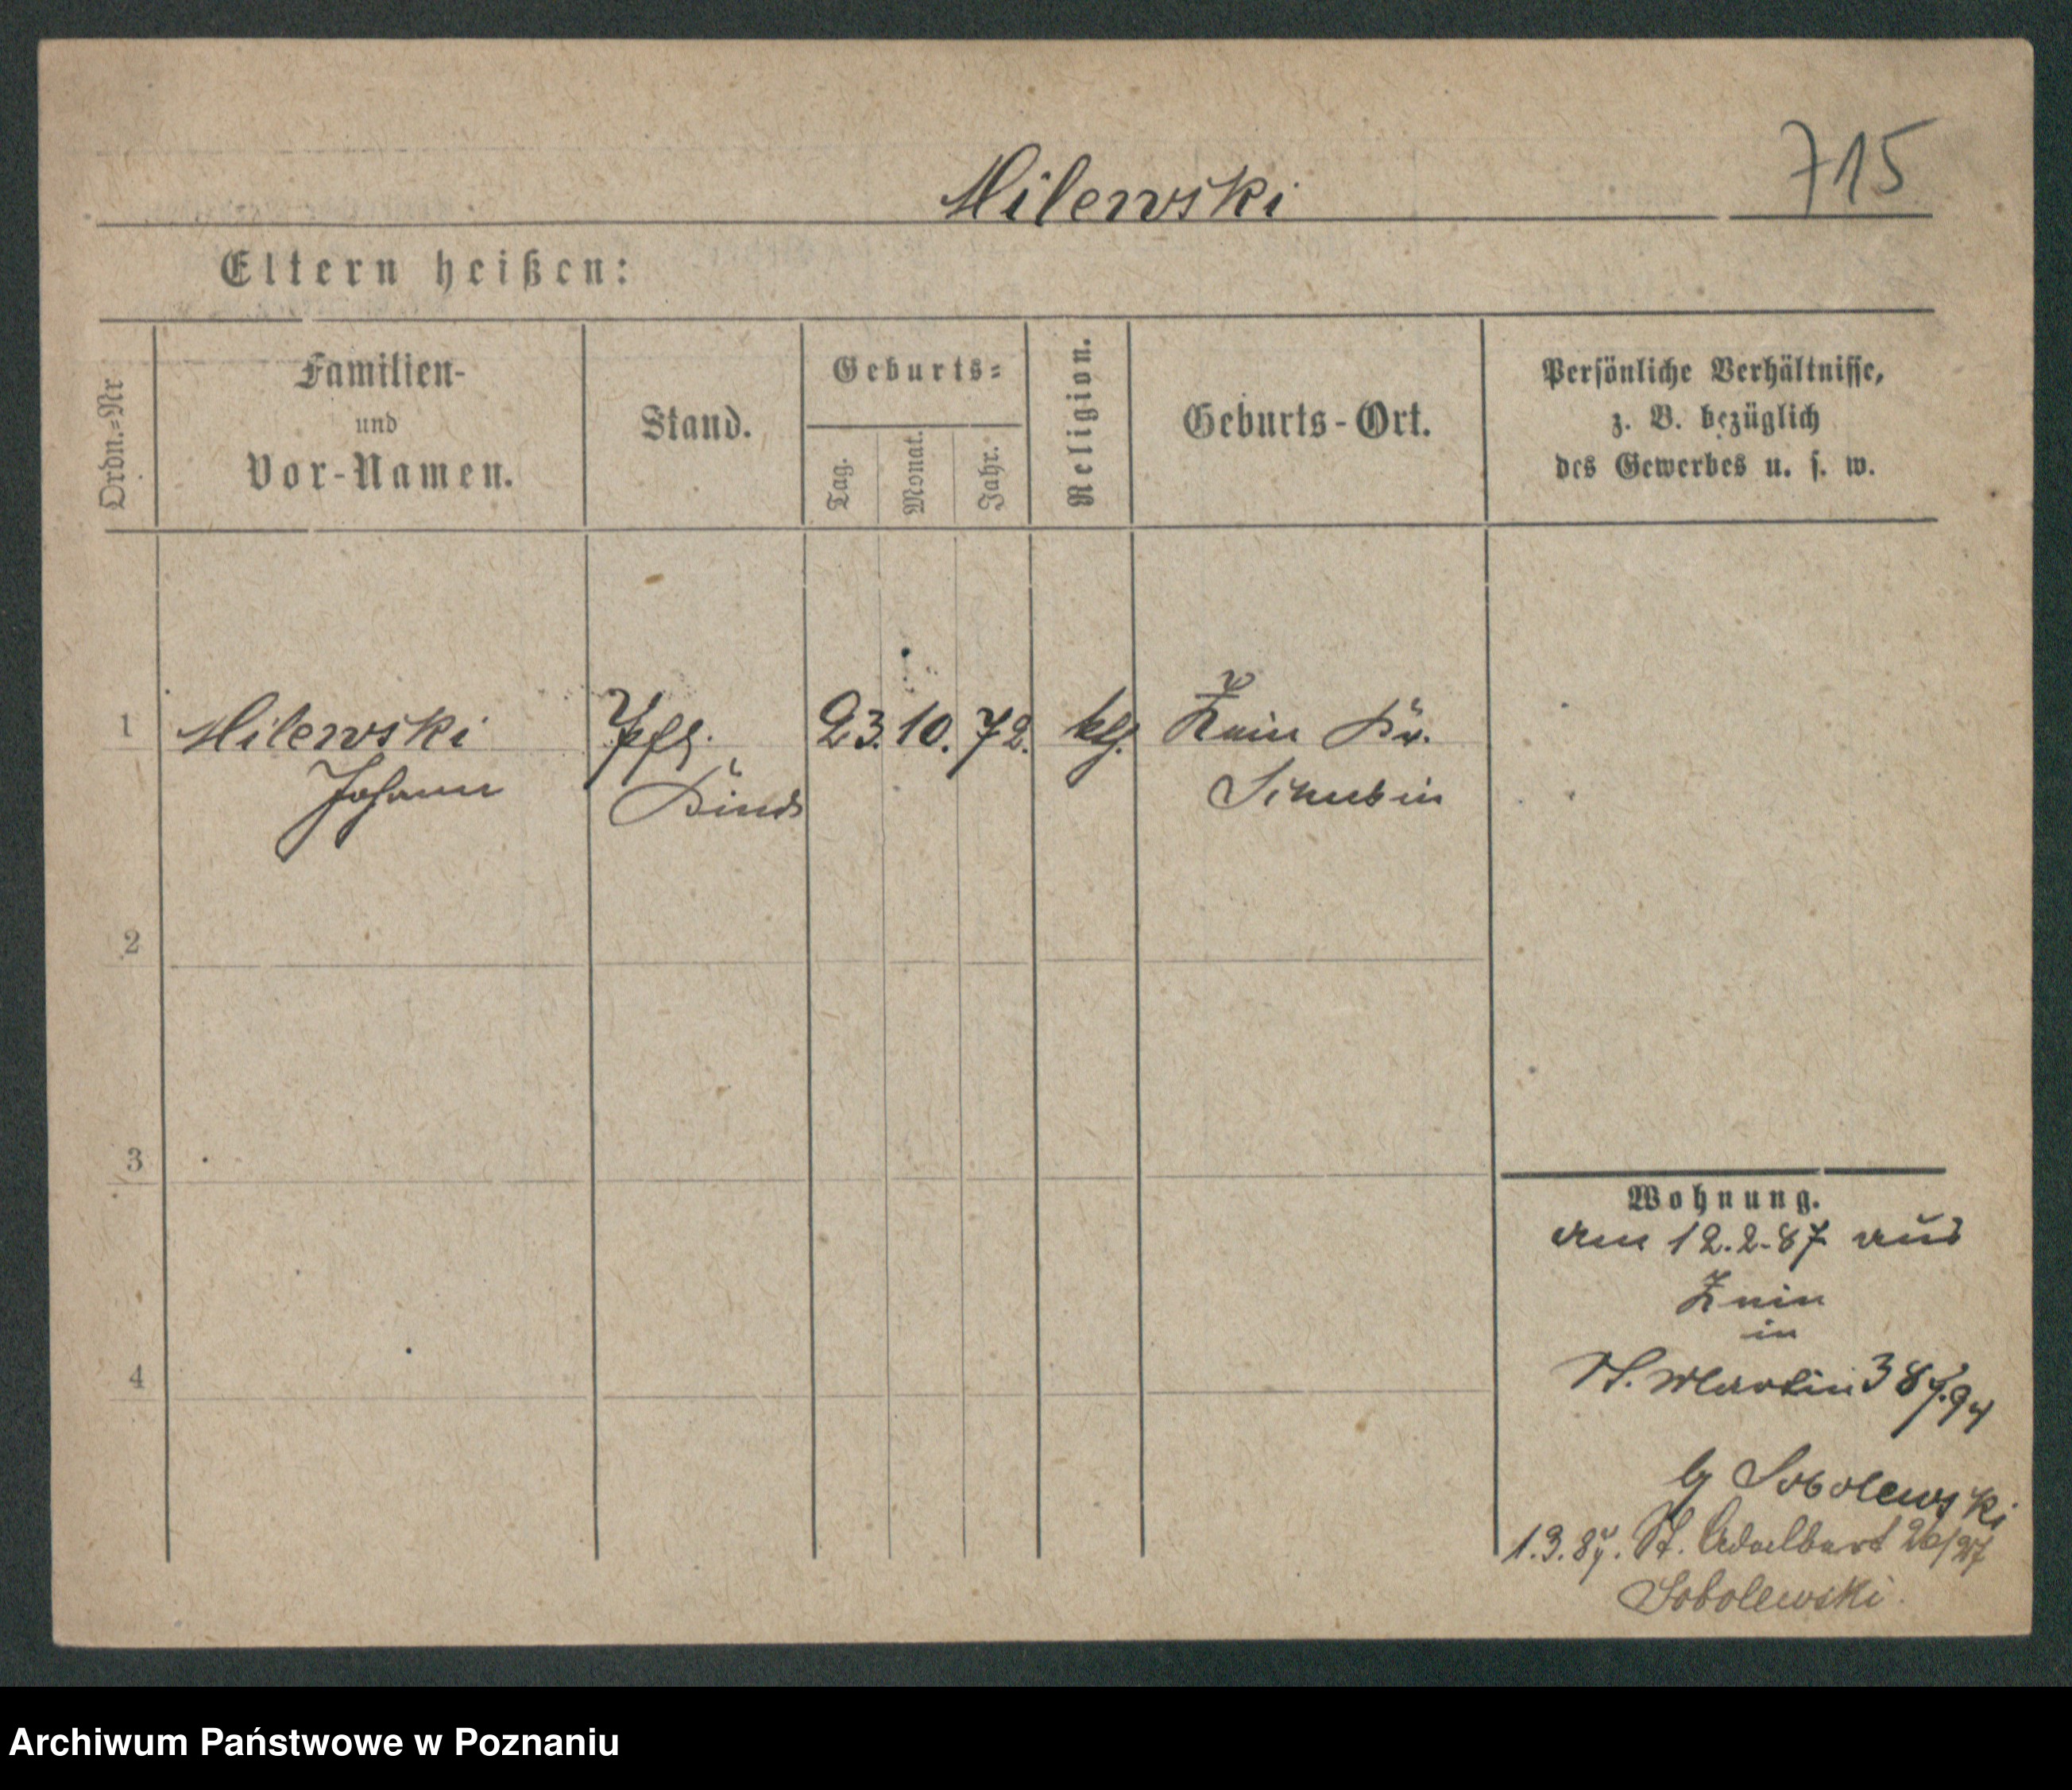 Milewski 715
Eltern heißen:
Ordn.-Nr
Familien-
und
Vor-Namen.
Stand.
Geburts-
Tag.
Monat.
Jahr.
Religion.
Geburts-Ort.
Persönliche Verhältnisse,
z. B. bezüglich
des Gewerbes u. s. w.
1 Milewski Pfl. 23. 10. 72. klg. Znin Kr.
Johann Kind Schubin
2
3
4
Wohnung.
am 12.2.87 aus
Znin
in
St. Martin 38
b/ Sobolewski
1.3.87. St. Adalbert 26/27
Sobolewski.
Archiwum Państwowe w Poznaniu